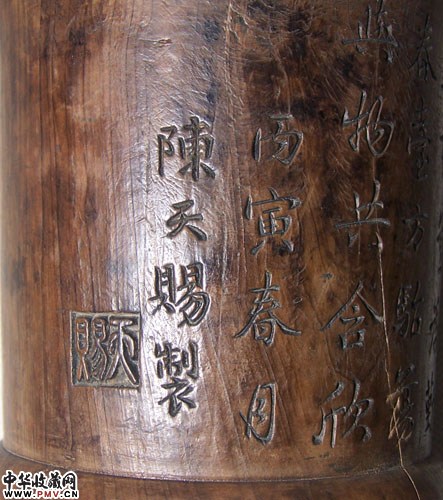 春臺方駘蕩
與物共含欣
丙寅春月
陳天賜製
天賜
中华收藏网
www.PMV.CN